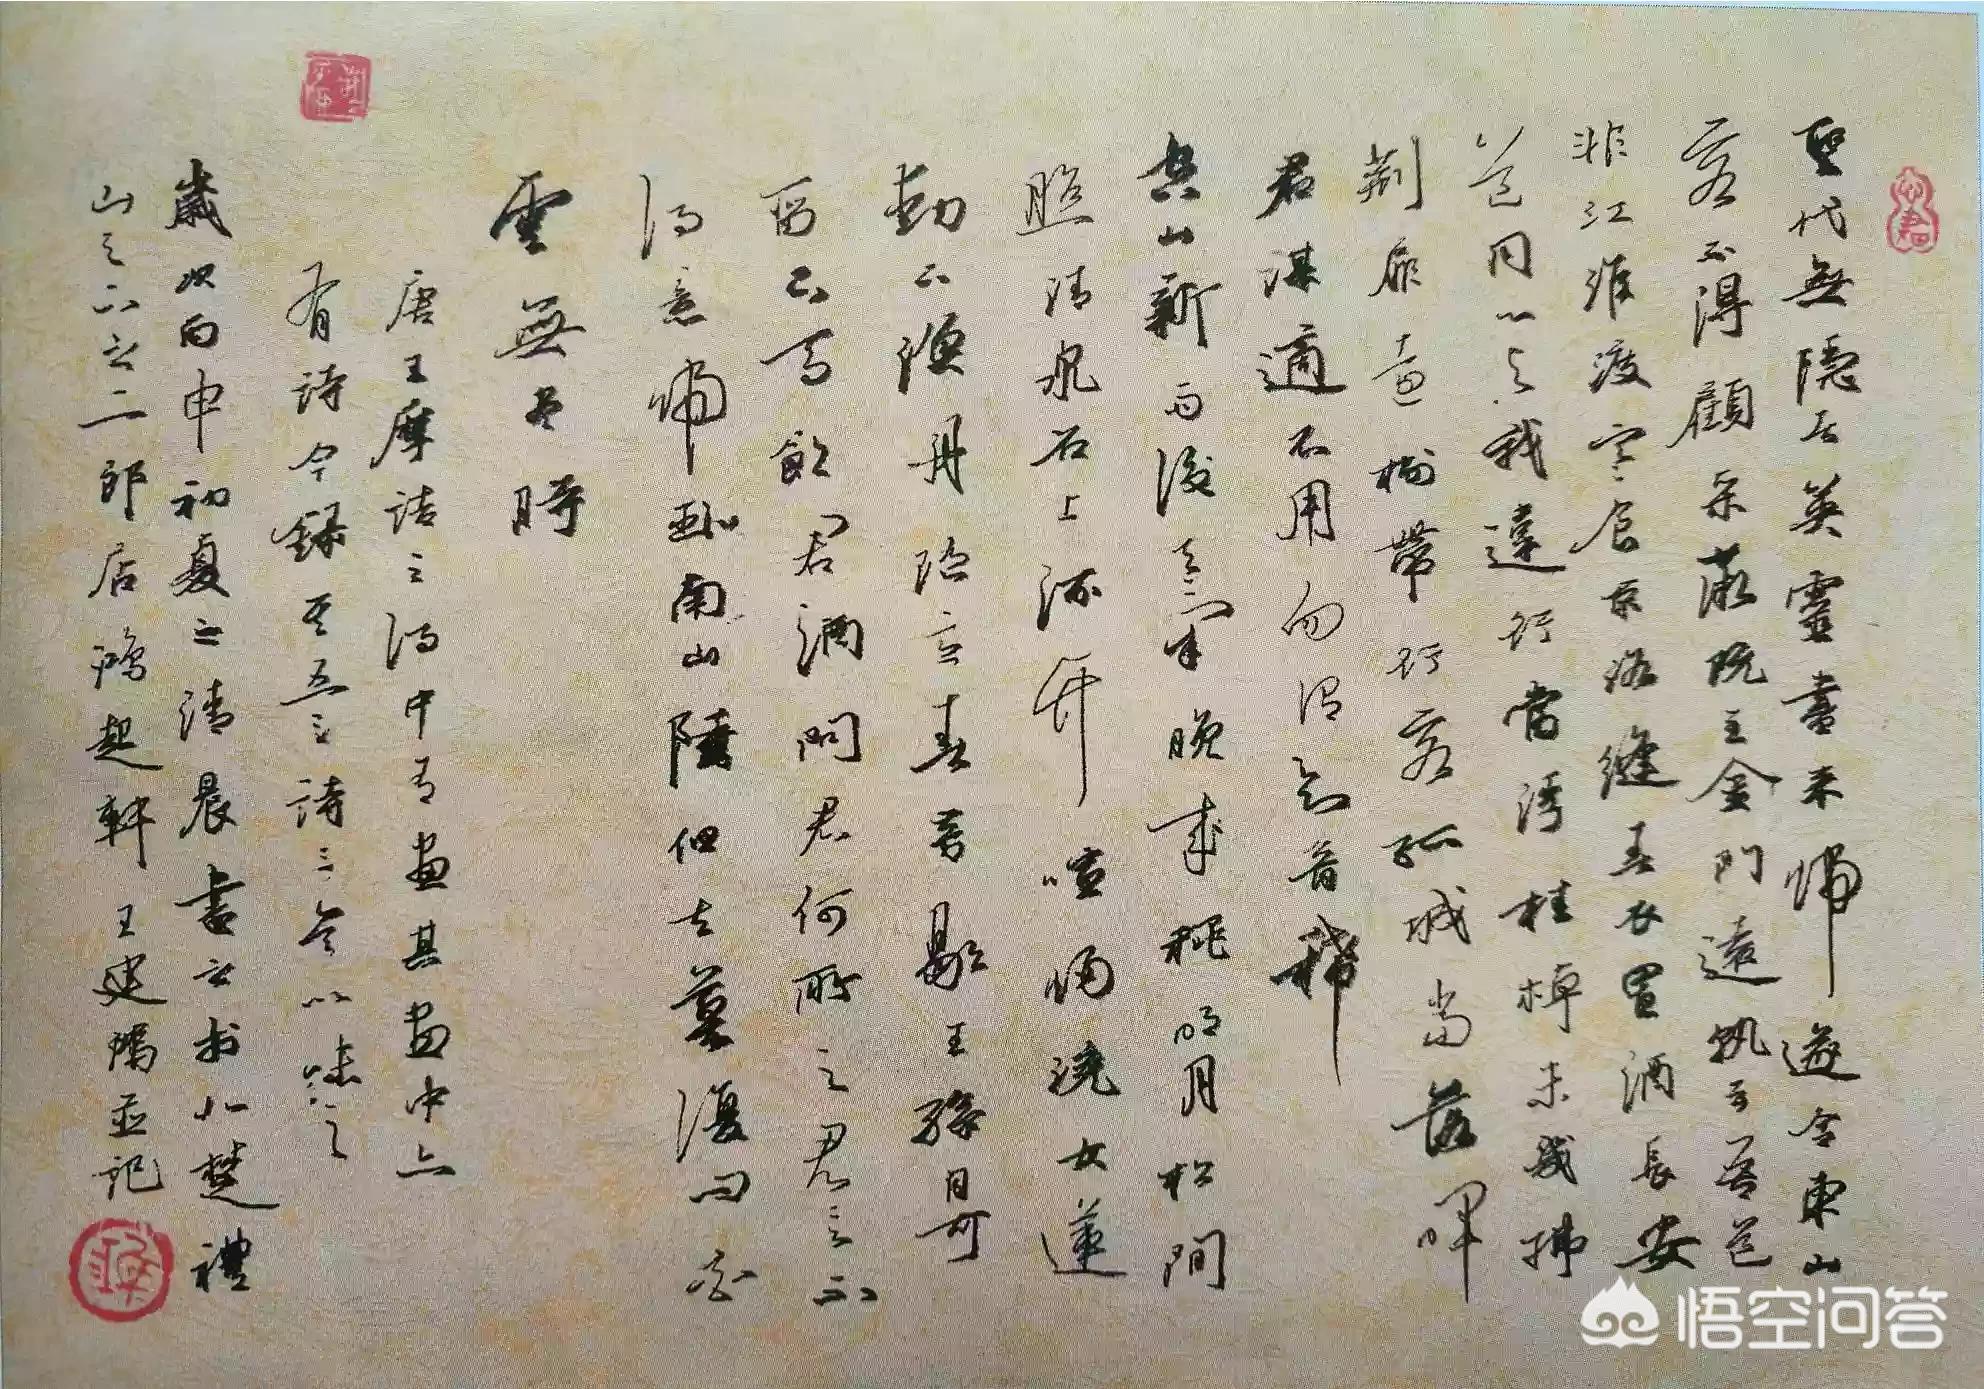 聖代無隱者英靈盡来歸遂令東山
客不得顧采薇既至金門遠孰云吾道
非江淮渡寒食京洛縫春衣置酒長安
道同心與我違行當浮桂棹未幾拂
荆扉遠樹帶行客孤城當落暉
君謀適不用勿謂知音稀
空山新雨後天氣晚来秋明月松間
照清泉石上流竹喧歸浣女蓮
動下漁舟隨意春芳歇王孫自可
留下馬飲君酒問君何所之君言不
得意歸卧南山陲但去莫復問白
雲無盡時
唐王摩詰之詩中有畫其畫中亦
有詩今録其五言詩三以味之
歲次丙申初夏之清晨書之於北楚禮
山之下之二郎居鴻起軒王建鴻並記
悟空问答